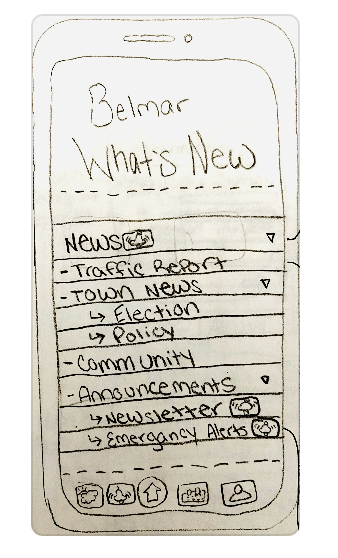 Belmar
What's New
News
-Traffic Report
-Town News
↳ Election
↳ Policy
-Community
-Announcements
↳Newsletter
↳Emergancy Alerts